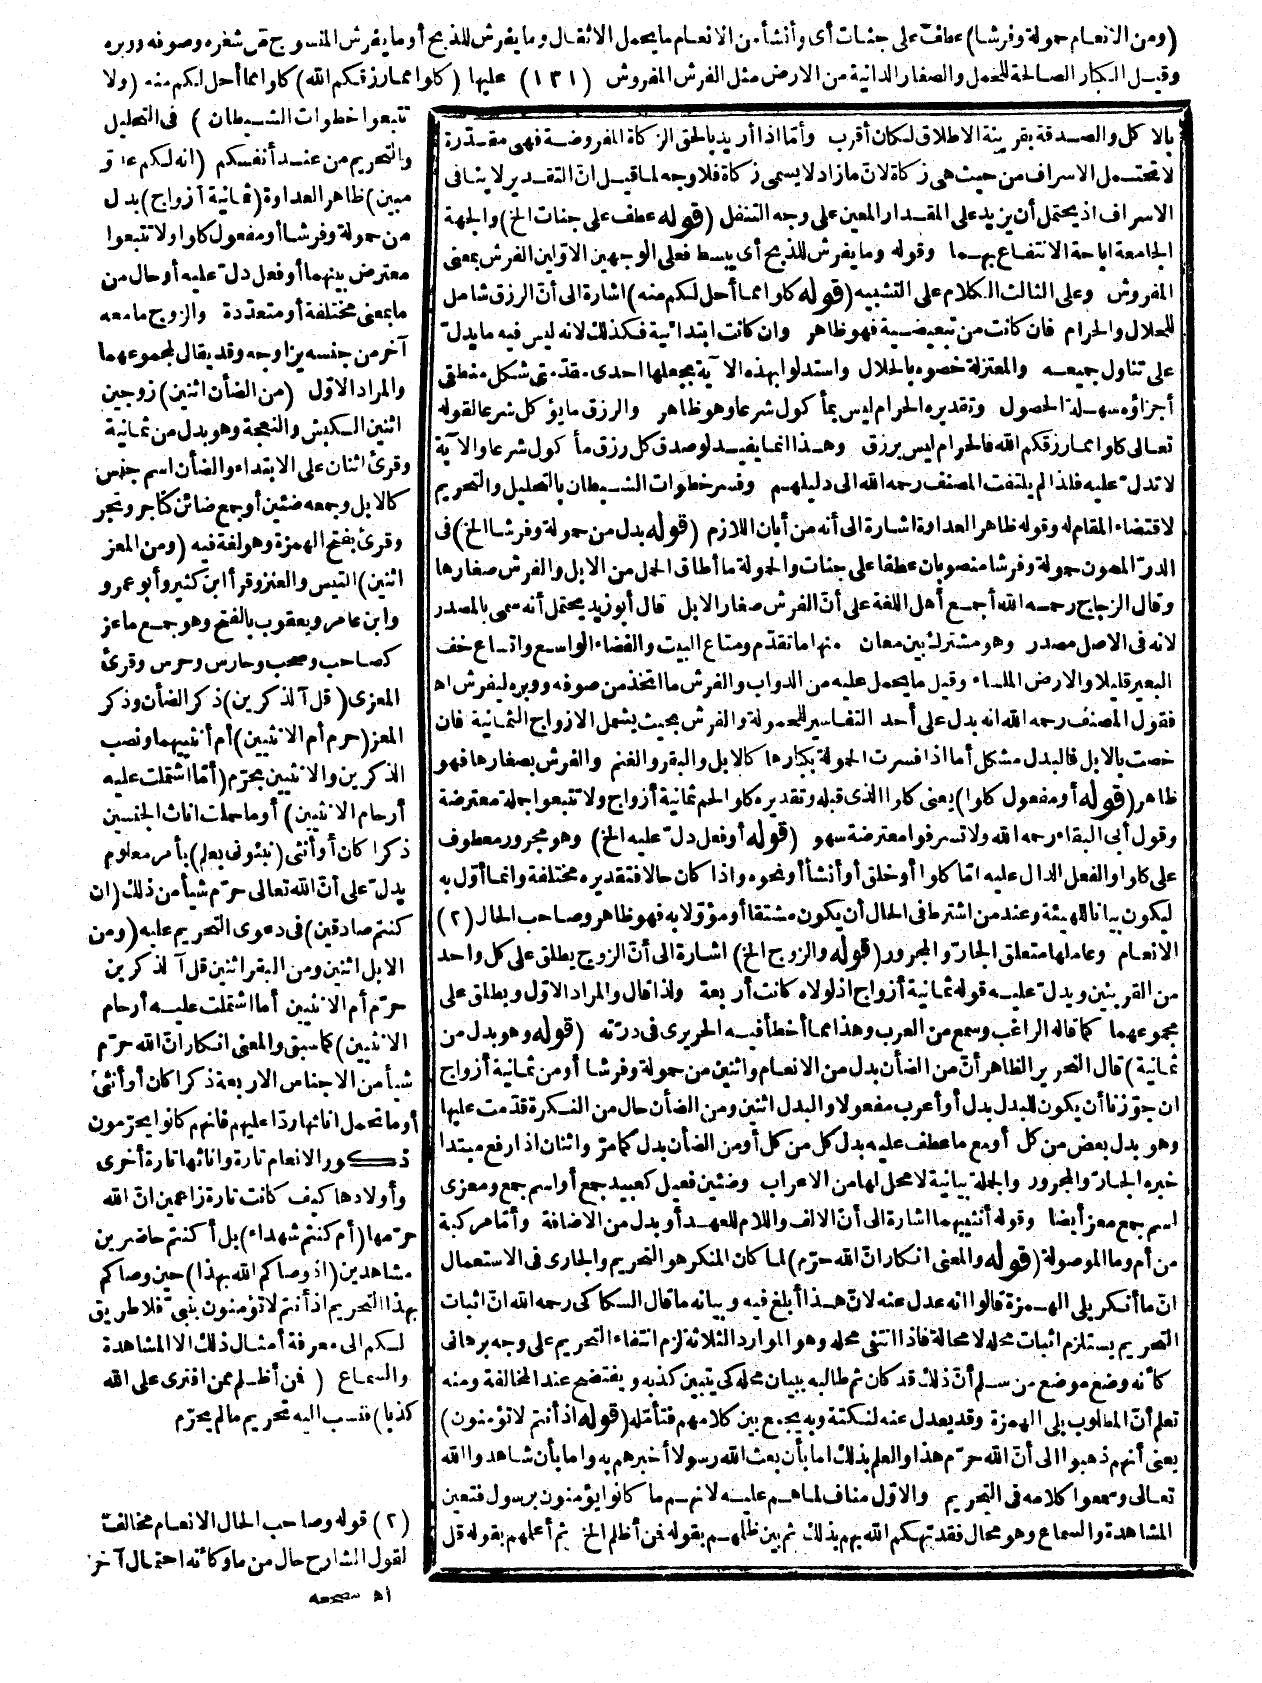 (ومن الانعام حمولة وفرشا) عطف على جنات أى وأنشأ من الانعام ما يحمل الاثقال وما يفرش للذبح أو ما يفرش المنسوج من شعره وصوفه ووبره
وقيل الكبار الصالحة للحمل والصغار الدانية من الارض مثل الفرش المفروش (١٣١) عليها (كلوا مما رزقكم الله) كلوا مما أحل لكم منه (ولا
تتبعوا خطوات الشيطان) فى التحليل
والتحريم من عند أنفسكم (انه لكم عدو
مبين) ظاهر العداوة (ثمانية أزواج) بدل
من حمولة وفرشا أو مفعول كلوا ولا تتبعوا
معترض بينهما أو فعل دل عليه أو حال من
ما بمعنى مختلفة أو متعددة والزوج ما معه
آخر من جنسه يزاوجه وقد يقال لمجموعهما
والمراد الاول (من الضأن اثنين) زوجين
اثنين الكبش والنعجة وهو بدل من ثمانية
وقرئ اثنان على الابتداء والضأن اسم جنس
كالابل وجمعه ضئين أو جمع ضائن كتاجر وتجر
وقرئ بفتح الهمزة وهو لغة فيه (ومن المعز
اثنين) التيس والعنز وقرأ ابن كثير وأبو عمرو
وابن عامر ويعقوب بالفتح وهو جمع ماعز
كصاحب وصحب وحارس وحرس وقرئ
المعزى (قل آلذكرين) ذكر الضأن وذكر
المعز (حرم أم الانثيين) أم أنثييهما ونصب
الذكرين والانثيين بحرّم (أمّا اشتملت عليه
أرحام الانثيين) أو ما حملت اناث الجنسين
ذكرا كان أو أنثى (نبئونى بعلم) بأمر معلوم
يدلّ على أنّ الله تعالى حرّم شيأ من ذلك (ان
كنتم صادقين) فى دعوى التحريم عليه (ومن
الابل اثنين ومن البقر اثنين قل آلذكرين
حرّم أم الانثيين أما اشتملت عليه أرحام
الانثيين) كما سبق والمعنى انكار انّ الله حرّم
شيأ من الاجناس الاربعة ذكرا كان أو أنثى
أو ما تحمل اناثها ردّا عليهم فانهم كانوا يحرّمون
ذكور الانعام تارة واناثها تارة أخرى
وأولادها كيف كانت تارة زاعمين انّ الله
حرّمها (أم كنتم شهداء) بل أكنتم حاضرين
مشاهدين (اذ وصاكم الله بهذا) حين وصاكم
بهذا التحريم اذ أنتم لا تؤمنون بنبىّ فلا طريق
لكم الى معرفة أمثال ذلك الا المشاهدة
والسماع (فمن أظلم ممن افترى على الله
كذبا) فنسب اليه تحريم ما لم يحرّم
بالاكل والصدقة بقرينة الاطلاق لكان أقرب وأمّا اذا أريد بالحق الزكاة المفروضة فهى مقدّرة
لا تحتمل الاسراف من حيث هى زكاة لانّ ما زاد لا يسمى زكاة فلا وجه لما قيل انّ التقدير لا ينافى
الاسراف اذ يحتمل أن يزيد على المقدار المعين على وجه التنفل (قوله عطف على جنات الخ) والجهة
الجامعة اباحة الانتفاع بهما وقوله وما يفرش للذبح أى يبسط فعلى الوجهين الاوّلين الفرش بمعنى
المفروش وعلى الثالث الكلام على التشبيه (قوله كلوا مما أحل لكم منه) اشارة الى أنّ الرزق شامل
للحلال والحرام فان كانت من تبعيضية فهو ظاهر وان كانت ابتدائية فكذلك لانه ليس فيه ما يدلّ
على تناول جميعه والمعتزلة خصوه بالحلال واستدلوا بهذه الآية بجعلها احدى مقدّمتى شكل منطقى
أجزاؤه سهلة الحصول وتقديره الحرام ليس بمأكول شرعا وهو ظاهر والرزق ما يؤكل شرعا لقوله
تعالى كلوا مما رزقكم الله فالحرام ليس برزق وهذا انما يفيد لو صدق كل رزق مأكول شرعا والآية
لا تدلّ عليه فلذا لم يلتفت المصنف رحمه الله الى دليلهم وفسر خطوات الشيطان بالتحليل والتحريم
لاقتضاء المقام له وقوله ظاهر العداوة اشارة الى أنه من أبان اللازم (قوله بدل من حمولة وفرشا الخ) فى
الدرّ المصون حمولة وفرشا منصوبان عطفا على جنات والحمولة ما أطاق الحمل من الابل والفرش صغارها
وقال الزجاج رحمه الله أجمع أهل اللغة على أنّ الفرش صغار الابل قال أبو زيد يحتمل أنه سمى بالمصدر
لانه فى الاصل مصدر وهو مشترك بين معان منها ما تقدّم ومتاع البيت والفضاء الواسع واتساع خف
البعير قليلا والارض الملساء وقيل ما يحمل عليه من الدواب والفرش ما اتخذ من صوفه ووبره ليفرش اه
فقول المصنف رحمه الله انه بدل على أحد التفاسير للحمولة والفرش بحيث يشمل الازواج الثمانية فان
خصت بالابل فالبدل مشكل أما اذا فسرت الحمولة بكبارها كالابل والبقر والغنم والفرش بصغارها فهو
ظاهر (قوله أو مفعول كلوا) يعنى كلوا الذى قبله وتقديره كلوا لحم ثمانية أزواج ولا تتبعوا جملة معترضة
وقول أبى البقاء رحمه الله ولا تسرفوا معترضة سهو (قوله أو فعل دلّ عليه الخ) وهو مجرور معطوف
على كلوا والفعل الدال عليه امّا كلوا أو خلق أو أنشأ أو نحوه واذا كان حالا فتقديره مختلفة وانما أوّل به
ليكون بيانا للهيئة وعند من اشترط فى الحال أن يكون مشتقا أو مؤوّلا به فهو ظاهر وصاحب الحال (٢)
الانعام وعاملها متعلق الجارّ والمجرور (قوله والزوج الخ) اشارة الى أنّ الزوج يطلق على كل واحد
من القرينين ويدلّ عليه قوله ثمانية أزواج اذ لولاه كانت أربعة ولذا قال والمراد الاوّل ويطلق على
مجموعهما كما قاله الراغب وسمع من العرب وهذا مما أخطأ فيه الحريرى فى درّته (قوله وهو بدل من
ثمانية) قال النحرير الظاهر أنّ من الضأن بدل من الانعام واثنين من حمولة وفرشا أو من ثمانية أزواج
ان جوّزنا أن يكون للبدل بدل أو أعرب مفعولا والبدل اثنين ومن الضأن حال من النكرة قدّمت عليها
وهو بدل بعض من كل أو مع ما عطف عليه بدل كل من كل أو من الضأن بدل كما مرّ واثنان اذا رفع مبتدا
خبره الجارّ والمجرور والجملة بيانية لا محل لها من الاعراب وضئين فعيل كعبيد جمع أو اسم جمع ومعزى
اسم جمع معز أيضا وقوله أنثييهما اشارة الى أنّ الالف واللام للعهد أو بدل من الاضافة وأمّا مركبة
من أم وما الموصولة (قوله والمعنى انكار انّ الله حرّم) لما كان المنكر هو التحريم والجارى فى الاستعمال
انّ ما أنكر يلى الهمزة قالوا انه عدل عنه لانّ هذا أبلغ فيه وبيانه ما قال السكاكى رحمه الله انّ اثبات
التحريم يستلزم اثبات محله لا محالة فاذا انتفى محله وهو الموارد الثلاثة لزم انتفاء التحريم على وجه برهانى
كأنه وضع موضع من سلم أنّ ذلك قد كان ثم طالبه ببيان محله كى يتبين كذبه ويفتضح عند المخالفة ومنه
تعلم أنّ المطلوب يلى الهمزة وقد يعدل عنه لنكتة وبه يجمع بين كلامهم فتأمّله (قوله اذ أنتم لا تؤمنون)
يعنى أنهم ذهبوا الى أنّ الله حرّم هذا والعلم بذلك اما بأن بعث الله رسولا أخبرهم به واما بأن شاهدوا الله
تعالى وسمعوا كلامه فى التحريم والاوّل مناف لما هم عليه لانهم ما كانوا يؤمنون برسول فتعين
المشاهدة والسماع وهو محال فقد تهكم الله بهم بذلك ثم بين ظلمهم بقوله فمن أظلم الخ ثم أعلمهم بقوله قل
(٢) قوله وصاحب الحال الانعام مخالف
لقول الشارح حال من ما وكأنه احتمال آخر
اه مصححه